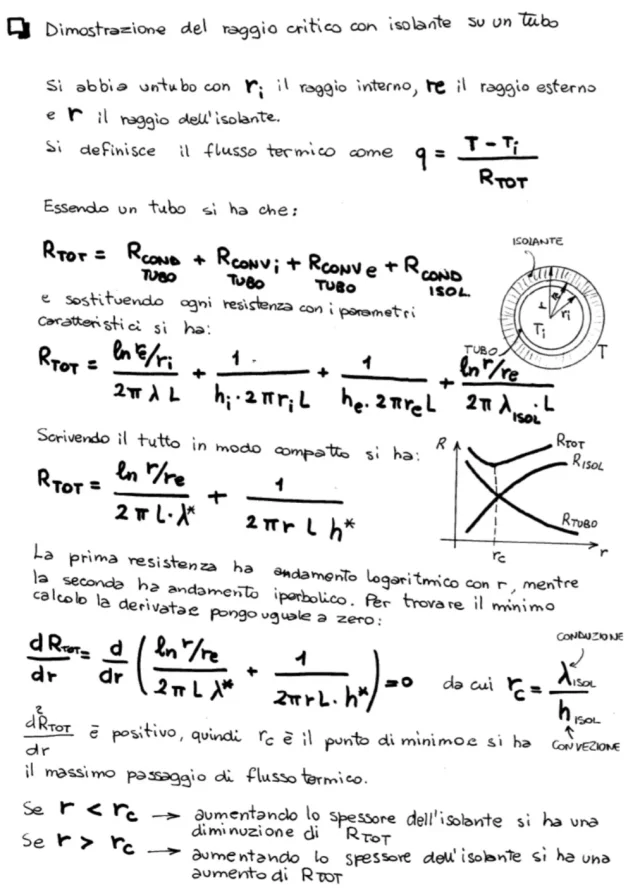 Dimostrazione del raggio critico con isolante su un tubo
Si abbia un tubo con ri il raggio interno, re il raggio esterno
e r il raggio dell'isolante.
Si definisce il flusso termico come q = (T - Ti) / RTOT
Essendo un tubo si ha che:
RTOT = RCOND TUBO + RCONVi TUBO + RCONVe TUBO + RCOND ISOL.
ISOLANTE
e sostituendo ogni resistenza con i parametri
caratteristici si ha:
re
ri
Ti
TUBO
T
RTOT = (ln re/ri) / (2π λ L) + 1 / (hi · 2πri L) + 1 / (he · 2πre L) + (ln r/re) / (2π λISOL · L)
Scrivendo il tutto in modo compatto si ha:
RTOT = (ln r/re) / (2π L · λ*) + 1 / (2πr L h*)
R
RTOT
RISOL
RTUBO
rc
r
La prima resistenza ha andamento logaritmico con r, mentre
la seconda ha andamento iperbolico. Per trovare il minimo
calcolo la derivata e pongo uguale a zero:
dRTOT/dr = d/dr ( (ln r/re) / (2π L λ*) + 1 / (2πr L · h*) ) = 0 da cui rc = λISOL / hISOL
CONDUZIONE
CONVEZIONE
d²RTOT/dr è positivo, quindi rc è il punto di minimo e si ha
il massimo passaggio di flusso termico.
Se r < rc → aumentando lo spessore dell'isolante si ha una
diminuzione di RTOT
Se r > rc → aumentando lo spessore dell'isolante si ha una
aumento di RTOT